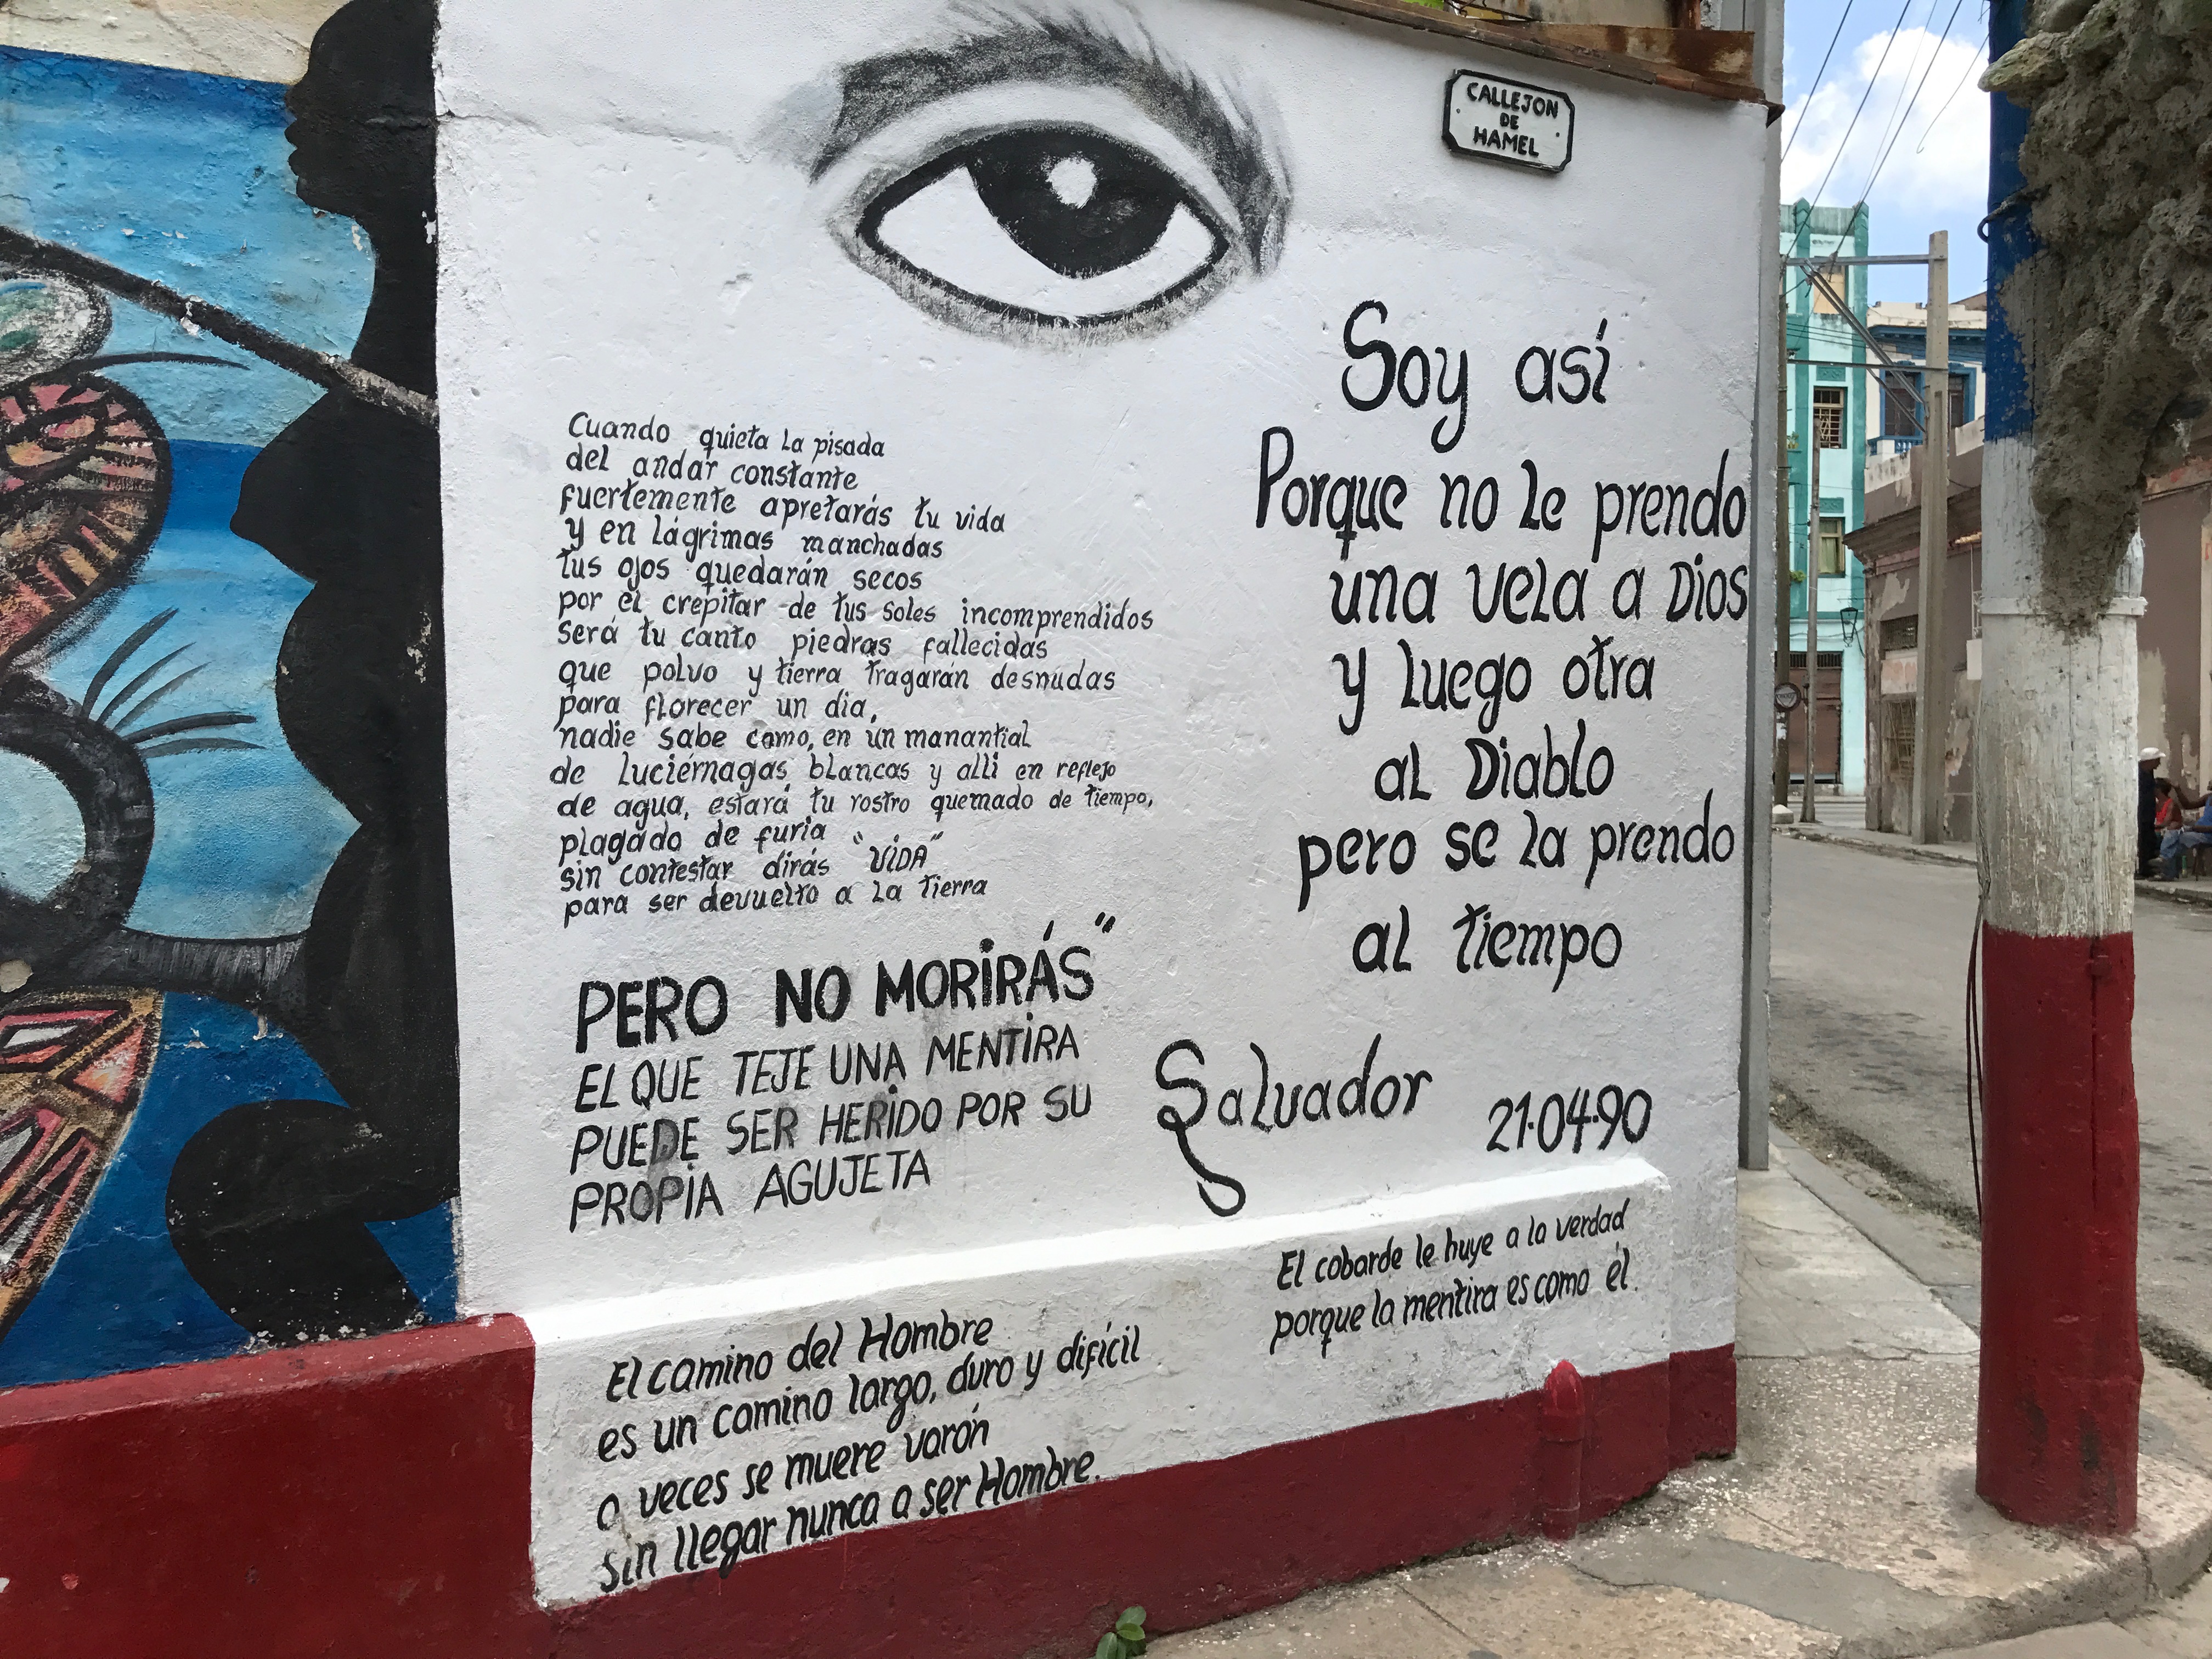 CALLEJON
DE
HAMEL
Cuando quieta la pisada
del andar constante
fuertemente apretarás tu vida
y en lágrimas manchadas
tus ojos quedarán secos
por el crepitar de tus soles incomprendidos
será tu canto piedras fallecidas
que polvo y tierra tragarán desnudas
para florecer un dia,
nadie sabe como, en un manantial
de luciérnagas blancas y alli en reflejo
de agua, estará tu rostro quemado de tiempo,
plagado de furia
sin contestar dirás "VIDA"
para ser devuelto a la tierra
PERO NO MORIRÁS"
EL QUE TEJE UNA MENTIRA
PUEDE SER HERIDO POR SU
PROPIA AGUJETA
Soy así
Porque no le prendo
una vela a Dios
y luego otra
al Diablo
pero se la prendo
al tiempo
Salvador 21·04·90
El camino del Hombre
es un camino largo, duro y difícil
a veces se muere varón
sin llegar nunca a ser Hombre.
El cobarde le huye a la verdad
porque la mentira es como él.